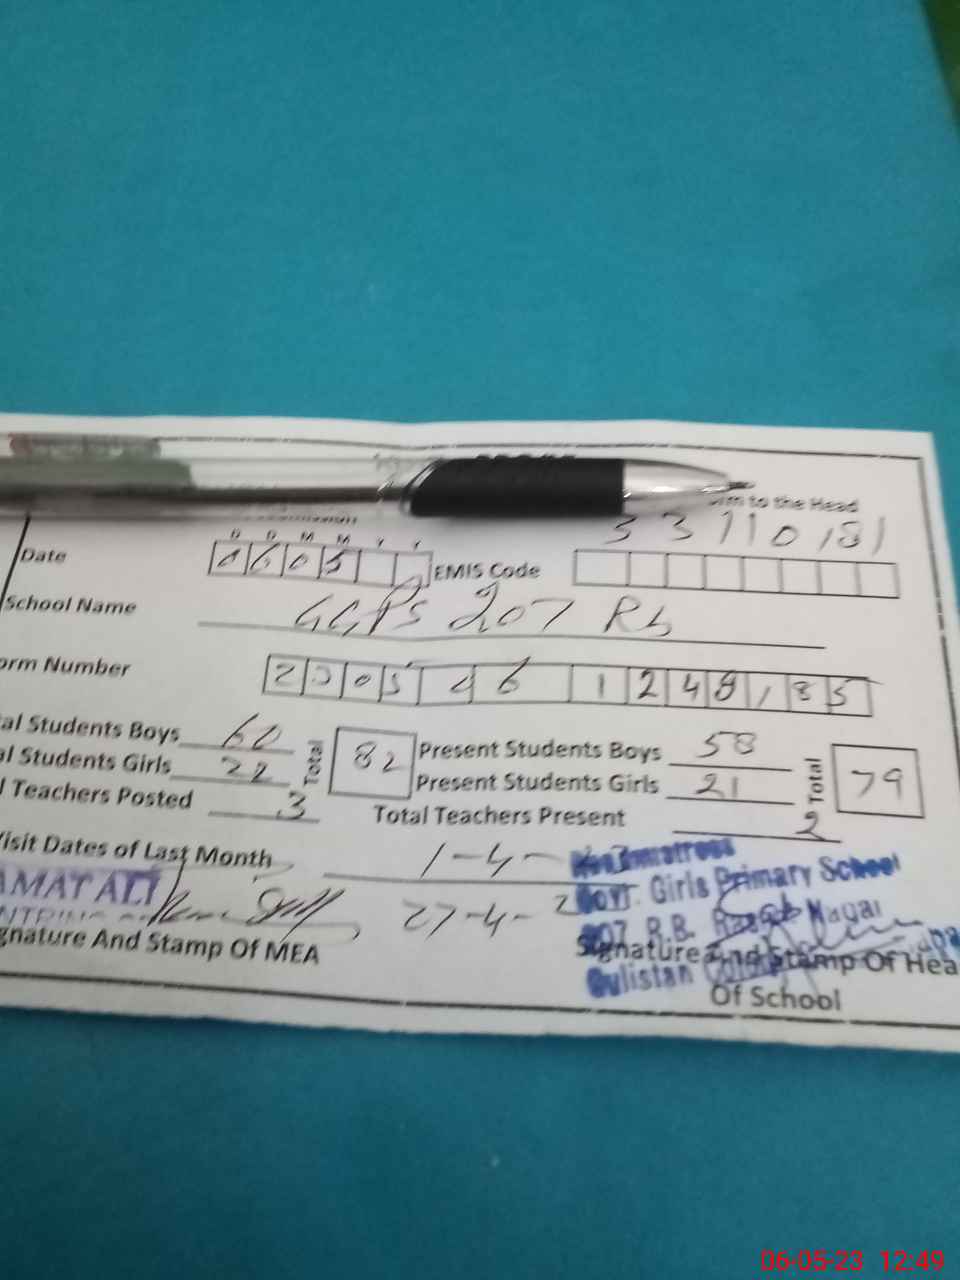 to the Head
3 3 1 1 0 1 8 1
D D M M Y Y
Date 0 6 0 5 EMIS Code
School Name GGPS 207 RB
orm Number 2 3 0 5 6 1 2 4 9 1 8 5
al Students Boys 60 Total 82 Present Students Boys 58 Total 79
al Students Girls 22 Present Students Girls 21
l Teachers Posted 3 Total Teachers Present 2
isit Dates of Last Month 1-4-
AMAT ALI 27-4-2
gnature And Stamp Of MEA
Govt. Girls Primary School
207 R.B. Nagar
Gulistan
Signature And Stamp Of Hea
Of School
06-05-23 12:49